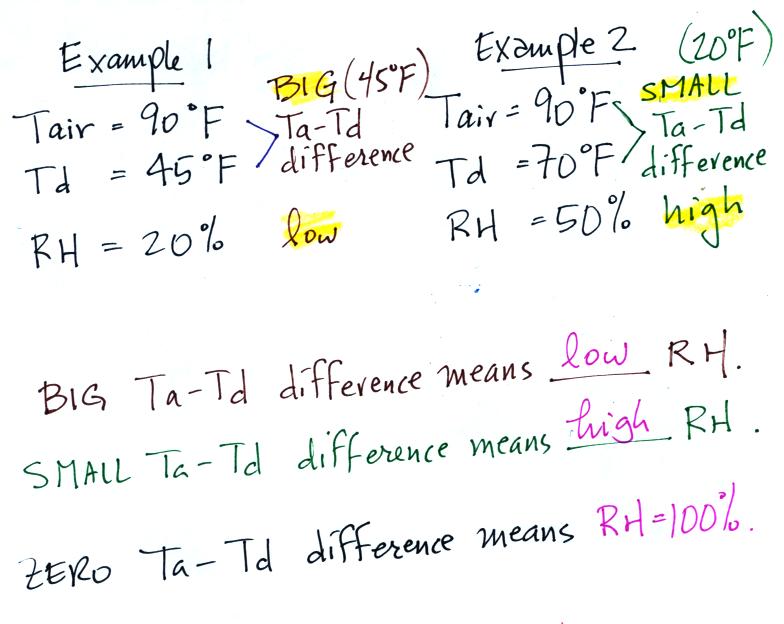 Example 1
BIG (45°F)
Tair = 90°F
Ta-Td
Td = 45°F
difference
RH = 20% low
Example 2 (20°F)
SMALL
Tair = 90°F
Ta-Td
Td = 70°F
difference
RH = 50% high
BIG Ta-Td difference means low RH.
SMALL Ta-Td difference means high RH.
ZERO Ta-Td difference means RH=100%.